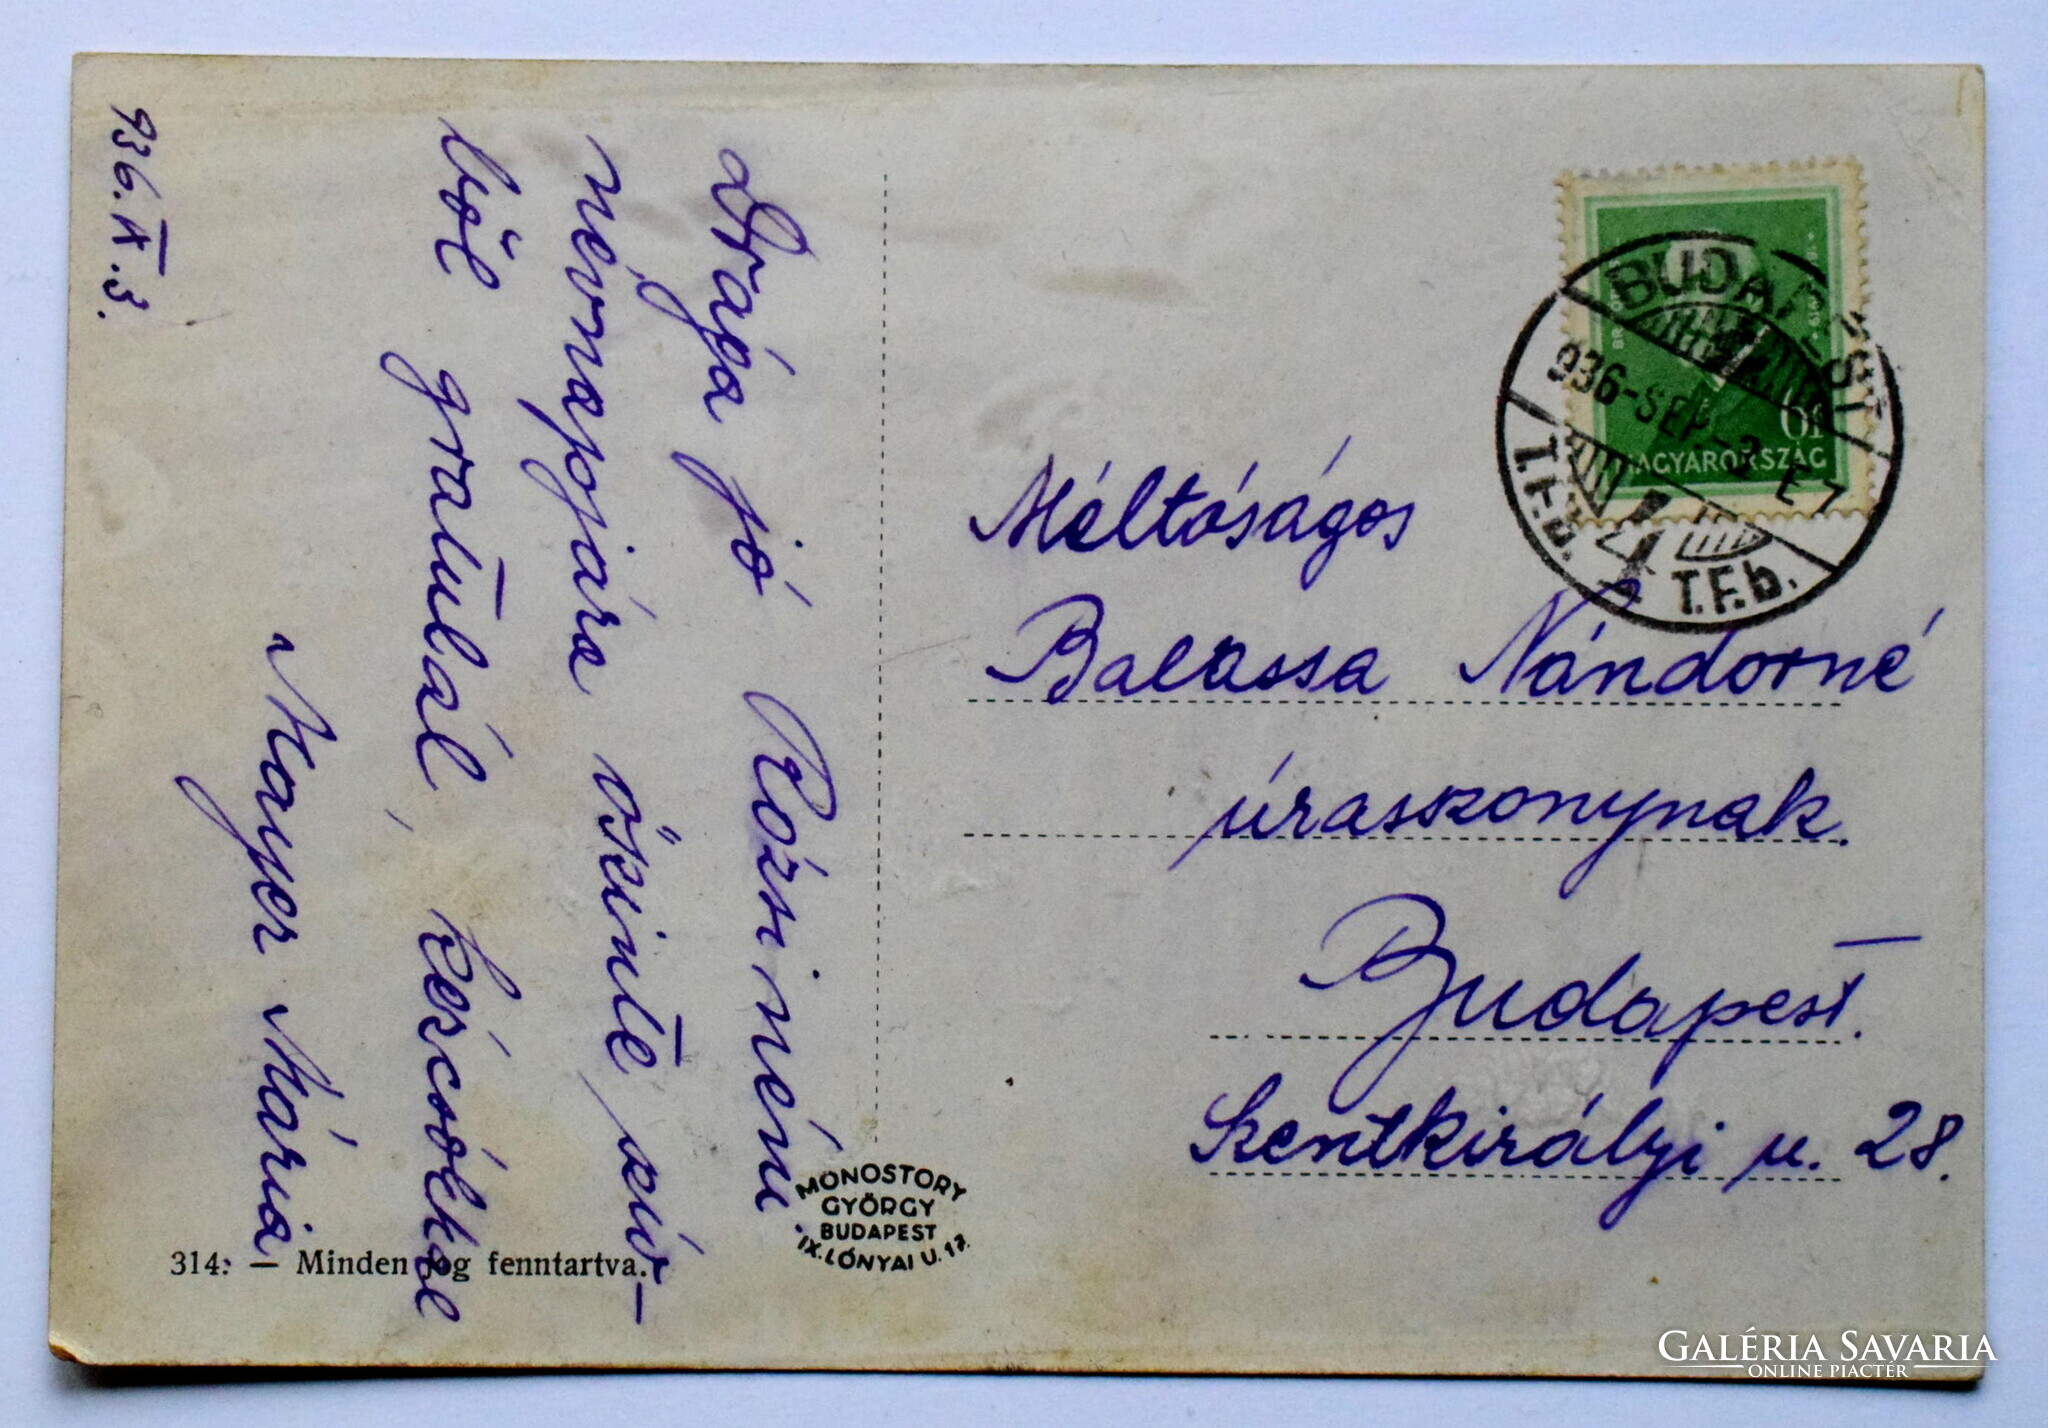 936. IX. 3.
Drága jó Rózsi néni
névnapjára őszinte szív-
ből gratulál, kézcsókkal
Mayer Mária
314. — Minden jog fenntartva.
MONOSTORY
GYÖRGY
BUDAPEST
IX. LÓNYAI U. 17.
MAGYARORSZÁG
6f
BUDAPEST
936-SEP.-3 E7
T.F.b. T.F.b.
Méltóságos
Balassa Nándorné
úrasszonynak.
Budapest.
Szentkirályi u. 28.
GALÉRIA SAVARIA
ONLINE PIACTÉR